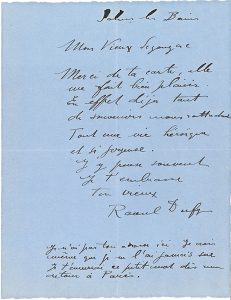 Salies les Bains
Mon Vieux Segonzac
Merci de ta carte, elle
me fait bien plaisir.
En effet déjà tant
de souvenirs nous rattachent
Tout une vie héroïque
et si joyeuse.
J'y pense souvent
Je t'embrasse
ton vieux
Raoul Dufy
Je n'ai pas ton adresse ici. Je crois
même que je ne l'ai jamais sue
Je t'enverrai ce petit mot dès mon
retour à Paris.